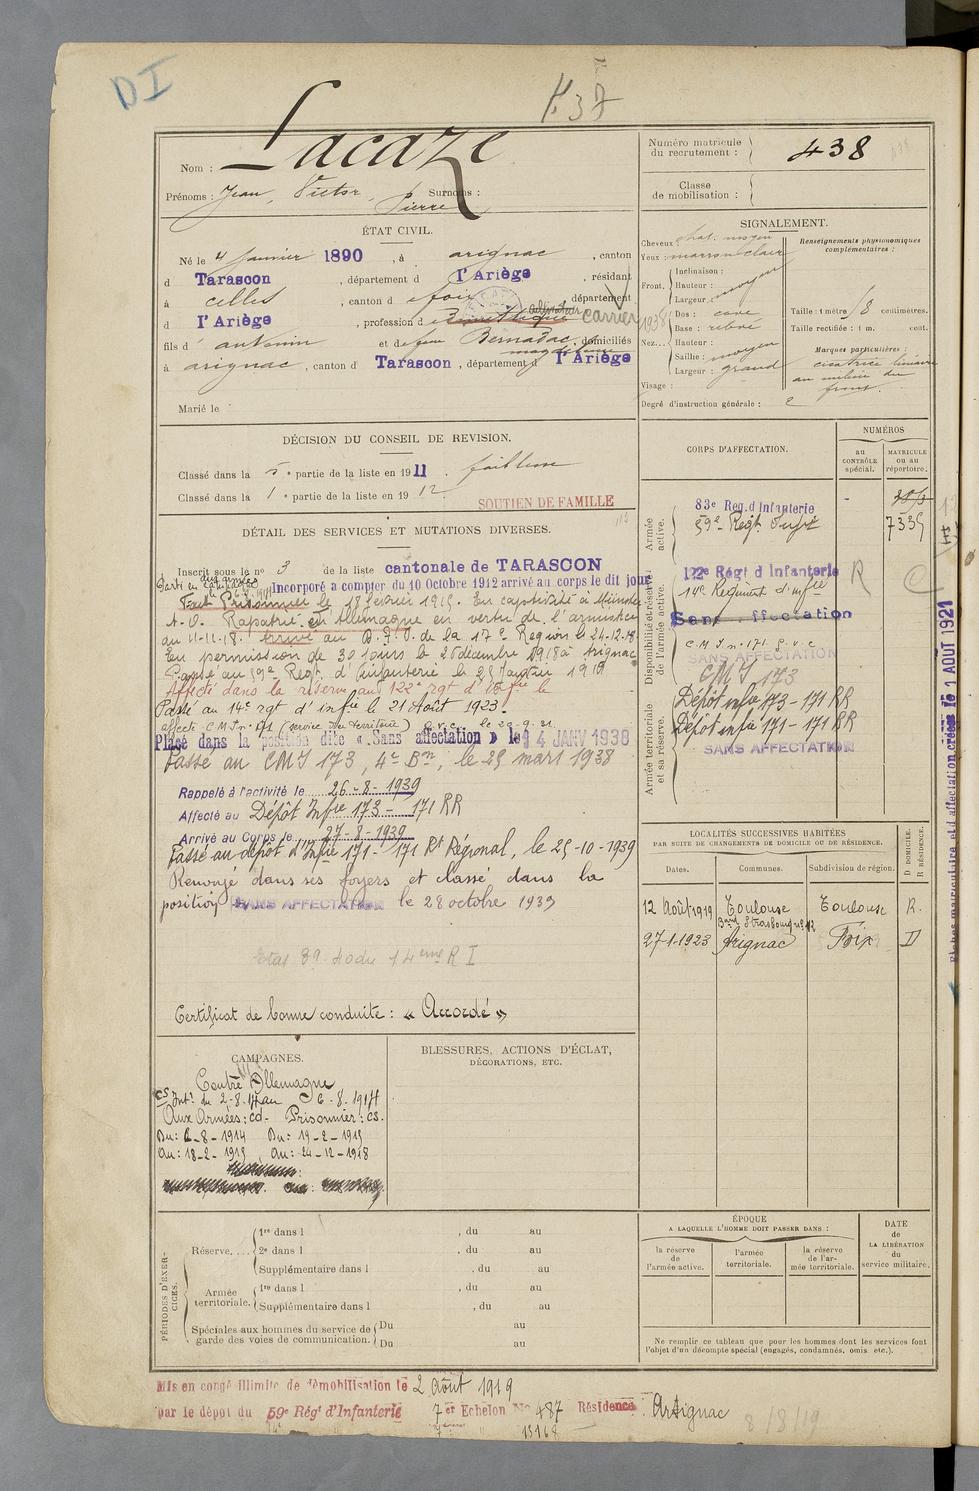 DI
Nom : Lacaze
Prénoms : Jean, Victor, Pierre Surnoms :
Numéro matricule du recrutement : 438
Classe de mobilisation :
ÉTAT CIVIL.
Né le 4 Janvier 1890, à arignac, canton
d Tarascon, département d l'Ariège, résidant
à celles, canton d e foix, département
d l'Ariège, profession d e cultivateur carrier 1938
fils d' antonin et de feu Bernadac magdeleine, domiciliés
à arignac, canton d' Tarascon, département d l'Ariège
Marié le
SIGNALEMENT.
Cheveux : chat. moyen
Yeux : marron clair
Front. Inclinaison :
Hauteur : moyen
Largeur :
Nez... Dos : cave
Base : relevé
Hauteur :
Saillie : moyen
Largeur : grand
Visage :
Renseignements physionomiques complémentaires :
Taille : 1 mètre 58 centimètres.
Taille rectifiée : 1 m. cent.
Marques particulières :
cicatrice linéaire
au milieu du
front.
Degré d'instruction générale : 2
DÉCISION DU CONSEIL DE REVISION.
Classé dans la 5e partie de la liste en 1911. faiblesse
Classé dans la 1e partie de la liste en 1912
SOUTIEN DE FAMILLE
DÉTAIL DES SERVICES ET MUTATIONS DIVERSES.
Inscrit sous le no 3 de la liste cantonale de TARASCON
Incorporé a compter du 10 Octobre 1912 arrivé au corps le dit jour
Fait Prisonnier le 18 février 1915. En captivité à Münster
A. O. Rapatrié en Allemagne en vertu de l'armistice
du 11-11-18. Arrivé au D. I. O. de la 17e Région le 24.12.18
En permission de 30 jours le 25 décembre 1918 à Arignac
Passé au 59e Regt d'infanterie le 25 Janvier 1919
Affecté dans la réserve au 122e rgt d'infie le
Passé au 14e rgt d'infie le 21 Août 1923
affecté C.M.I. no 171 (service du territoire) le 20-9-31
Placé dans la position dite « Sans affectation » le 14 JANV 1938
Passé au CMI 173, 4e Bon, le 25 mars 1938
Rappelé à l'activité le 26-8-1939
Affecté au Dépôt Infie 173 - 171 RR
Arrivé au Corps le 27-8-1939
Passé au dépôt d'Infie 171 - 171 Rt Régional, le 25-10-1939
Renvoyé dans ses foyers et classé dans la
position SANS AFFECTATION le 28 octobre 1939
Certificat de bonne conduite : « Accordé »
CORPS D'AFFECTATION.
NUMÉROS
au CONTRÔLE spécial.
MATRICULE ou au répertoire.
Armée active.
83e Reg. d Infanterie
59e Regt Infie 7335
Disponibilité et réserve de l'armée active.
122e Régt d Infanterie R
14e Regiment d'infie
Sans affectation
C.M.I. no 171 S.V.C
SANS AFFECTATION
CMI 173
Armée territoriale et sa réserve.
Dépôt infie 173 - 171 RR
Dépôt infie 171 - 171 RR
SANS AFFECTATION
LOCALITÉS SUCCESSIVES HABITÉES
PAR SUITE DE CHANGEMENTS DE DOMICILE OU DE RÉSIDENCE.
Dates. Communes. Subdivision de région. D DOMICILE. R RÉSIDENCE.
12 Août 1919 Toulouse Toulouse R.
Bard Strasbourg no 12
27-1-1923 Arignac Foix D
CAMPAGNES.
Contre Allemagne
CS Intr du 2-8-14 au 6-8-1914
Aux Armées : cd - Prisonnier : cs.
Du : 6-8-1914 Du : 19-2-1915
Au : 18-2-1915 Au : 24-12-1918
BLESSURES, ACTIONS D'ÉCLAT,
DÉCORATIONS, ETC.
PÉRIODES D'EXERCICES.
Réserve.... 1re dans l , du au
2e dans l , du au
Supplémentaire dans l , du au
Armée territoriale. 1re dans l , du au
Supplémentaire dans l , du au
Spéciales aux hommes du service de garde des voies de communication. Du au
Du au
ÉPOQUE
A LAQUELLE L'HOMME DOIT PASSER DANS :
la réserve de l'armée active.
l'armée territoriale.
la réserve de l'armée territoriale.
DATE DE LA LIBÉRATION du service militaire.
Ne remplir ce tableau que pour les hommes dont les services font
l'objet d'un décompte spécial (engagés, condamnés, omis, etc.).
Mis en congé illimité de démobilisation le 2 Août 1919
par le dépôt du 59e Régt d'Infanterie 7er Echelon No 487 Résidence Arignac
13168
8/8/19